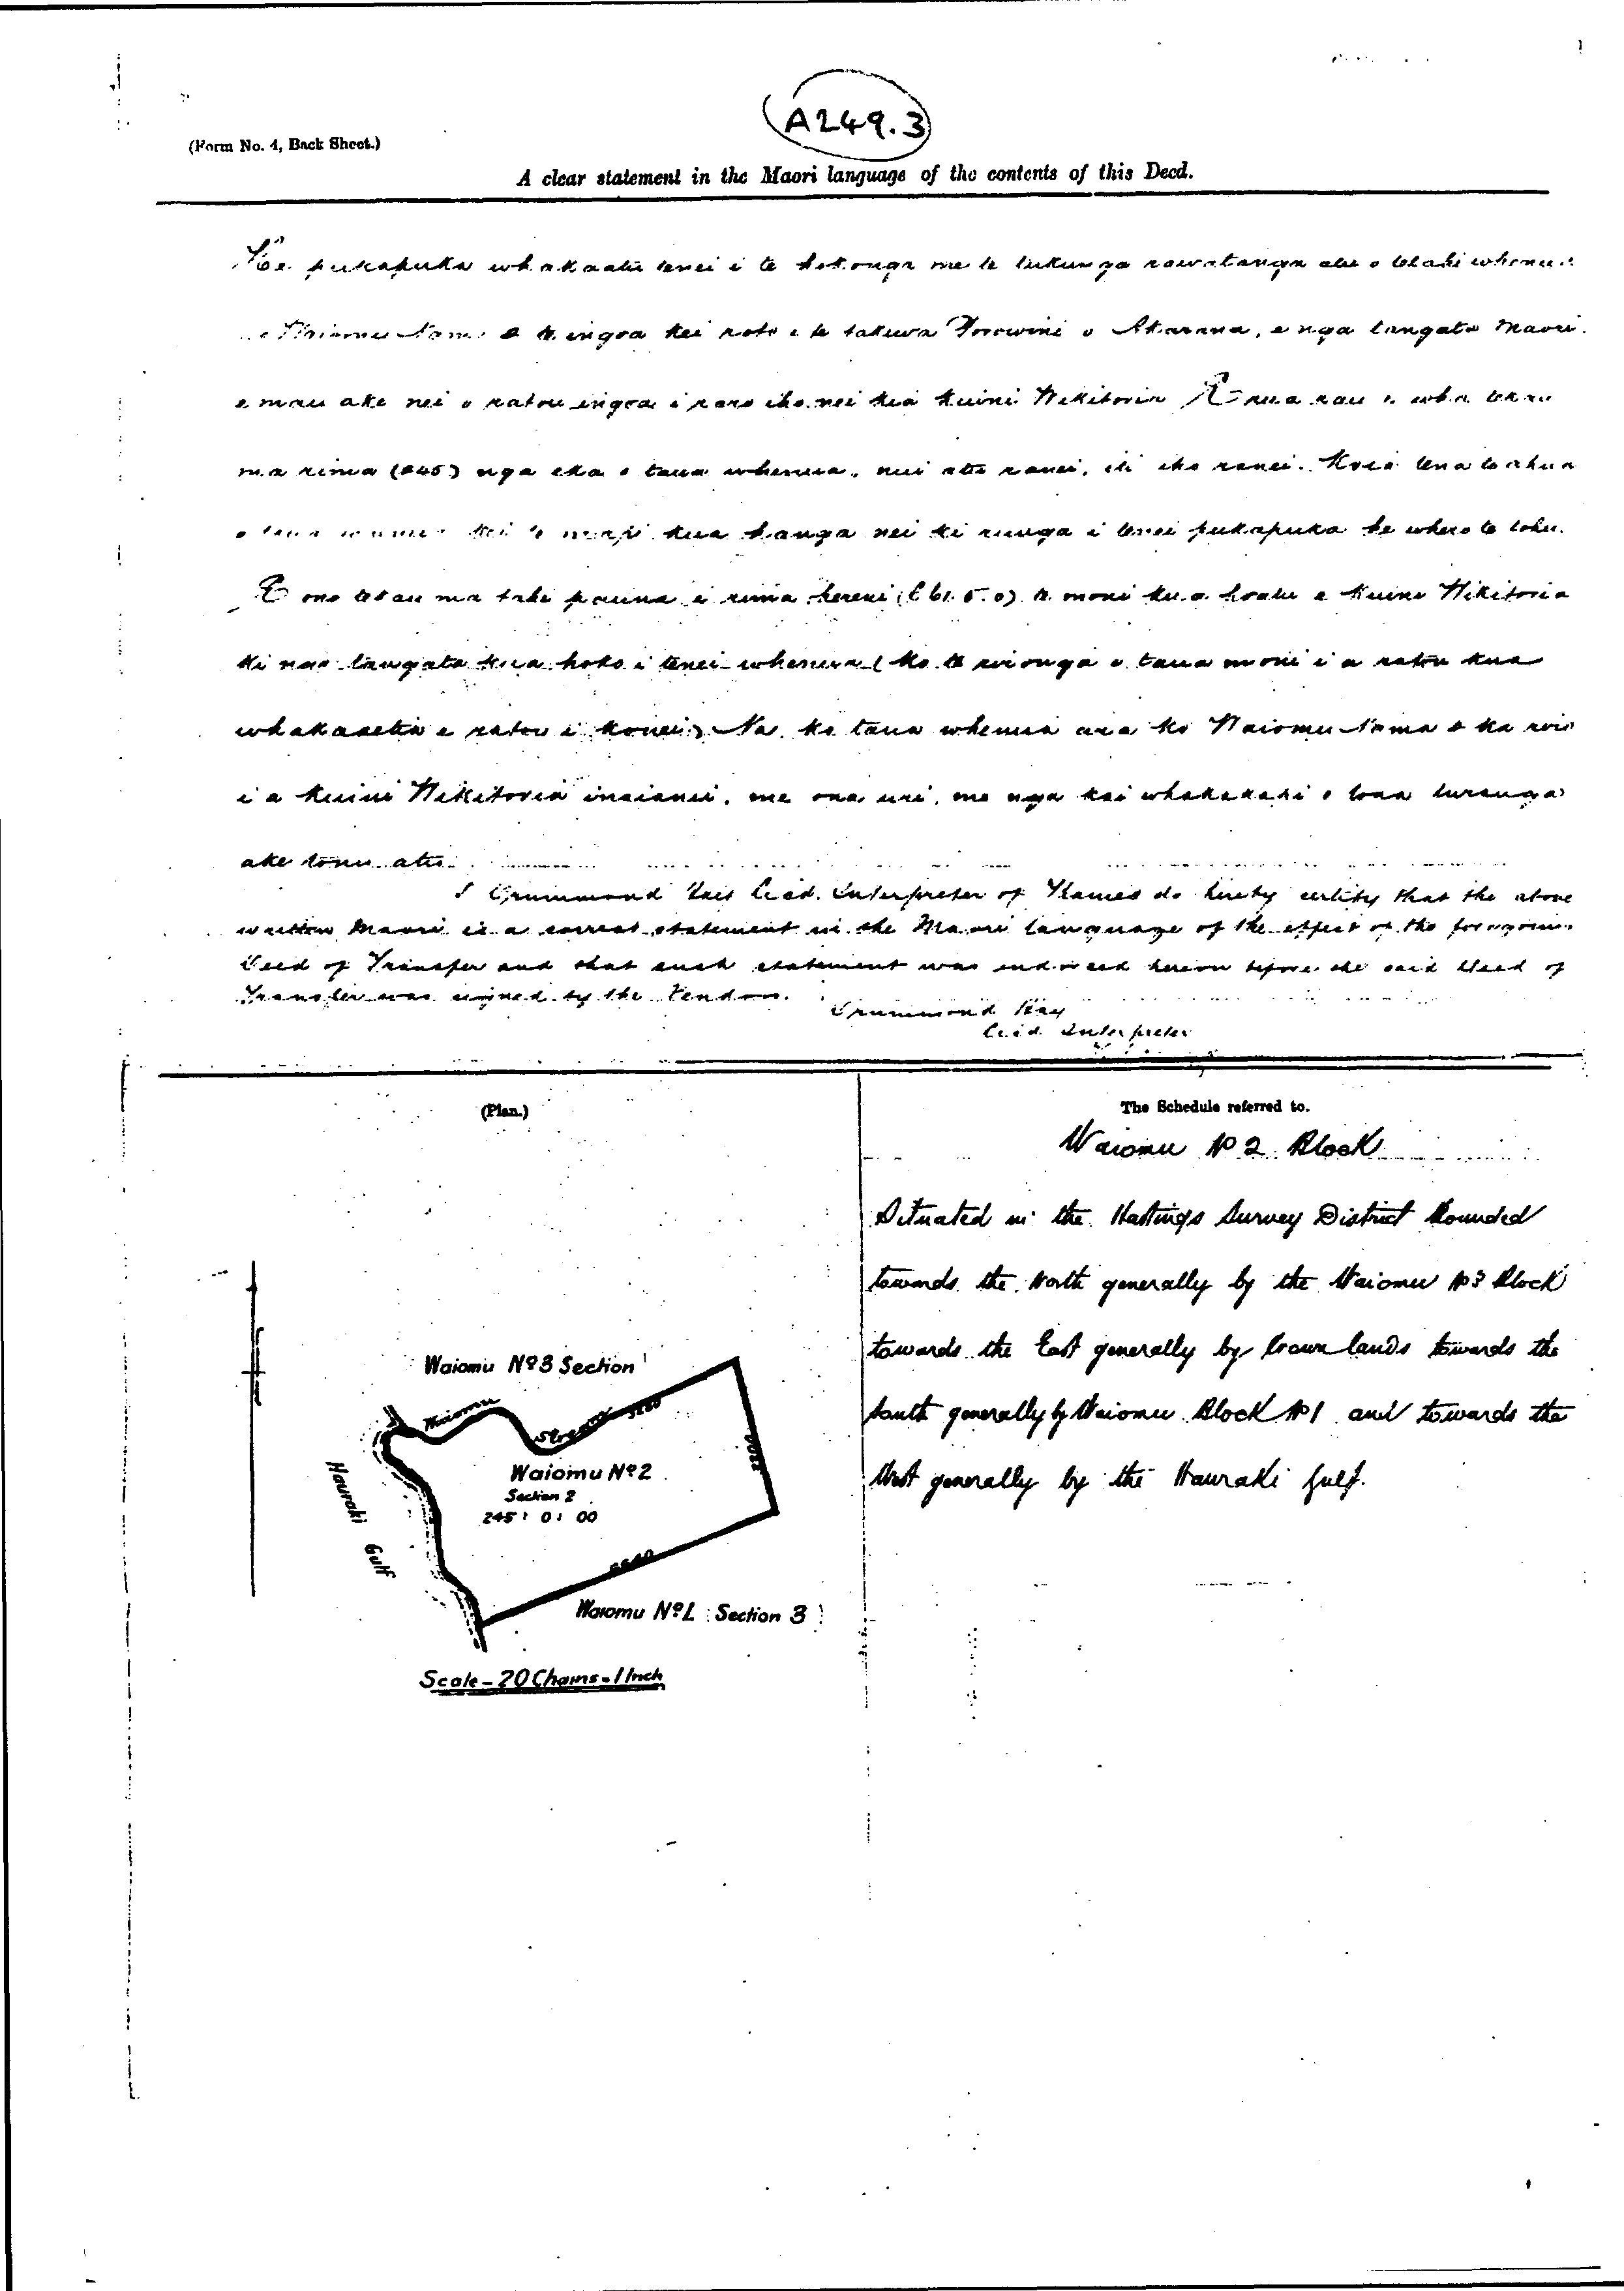 A249.3
(Form No. 4, Back Sheet.)
A clear statement in the Maori language of the contents of this Deed.
He pukapuka whakaatu tenei i te hokonga me te tukunga rawatanga atu o tetahi whenua
o Waiomu Nama 2 te ingoa kei roto i te takiwa Porowini o Akarana, e nga tangata Maori
e mau ake nei o ratou ingoa i raro iho nei kia Kuini Wikitoria E rua rau e wha tekau
ma rima (245) nga eka o taua whenua, nui atu ranei, iti iho ranei. Koia tena te ahua
o taua whenua kei te mapi kua hanga nei ki runga i tenei pukapuka he whero te tohu.
E ono tekau ma tahi pauna e rima hereni (£61.5.0) te moni kua hoatu e Kuini Wikitoria
ki nga tangata kua hoko i tenei whenua (ko te rironga o taua moni i a ratou kua
whakaaetia e ratou i konei) Na, ko taua whenua ara ko Waiomu Nama 2 ka riro
i a Kuini Wikitoria inaianei, me ona uri, me nga kai whakakapi o tona turanga
ake tonu atu
I Drummond Hay Licd. Interpreter of Thames do hereby certify that the above
written Maori is a correct statement in the Maori language of the effect of the foregoing
Deed of Transfer and that such statement was indorsed hereon before the said Deed of
Transfer was signed by the Vendors.
Drummond Hay
Licd. Interpreter
(Plan.)
Waiomu Nº3 Section
Waiomu
Stream
Waiomu Nº2
Section 2
245: 0: 00
Hauraki Gulf
Waiomu Nº1 Section 3
Scale - 20 Chains = 1 Inch
The Schedule referred to.
Waiomu Nº 2 Block
Situated in the Hastings Survey District Bounded
towards the North generally by the Waiomu Nº3 Block
towards the East generally by Crown lands towards the
South generally by Waiomu Block Nº1 and towards the
West generally by the Hauraki Gulf.